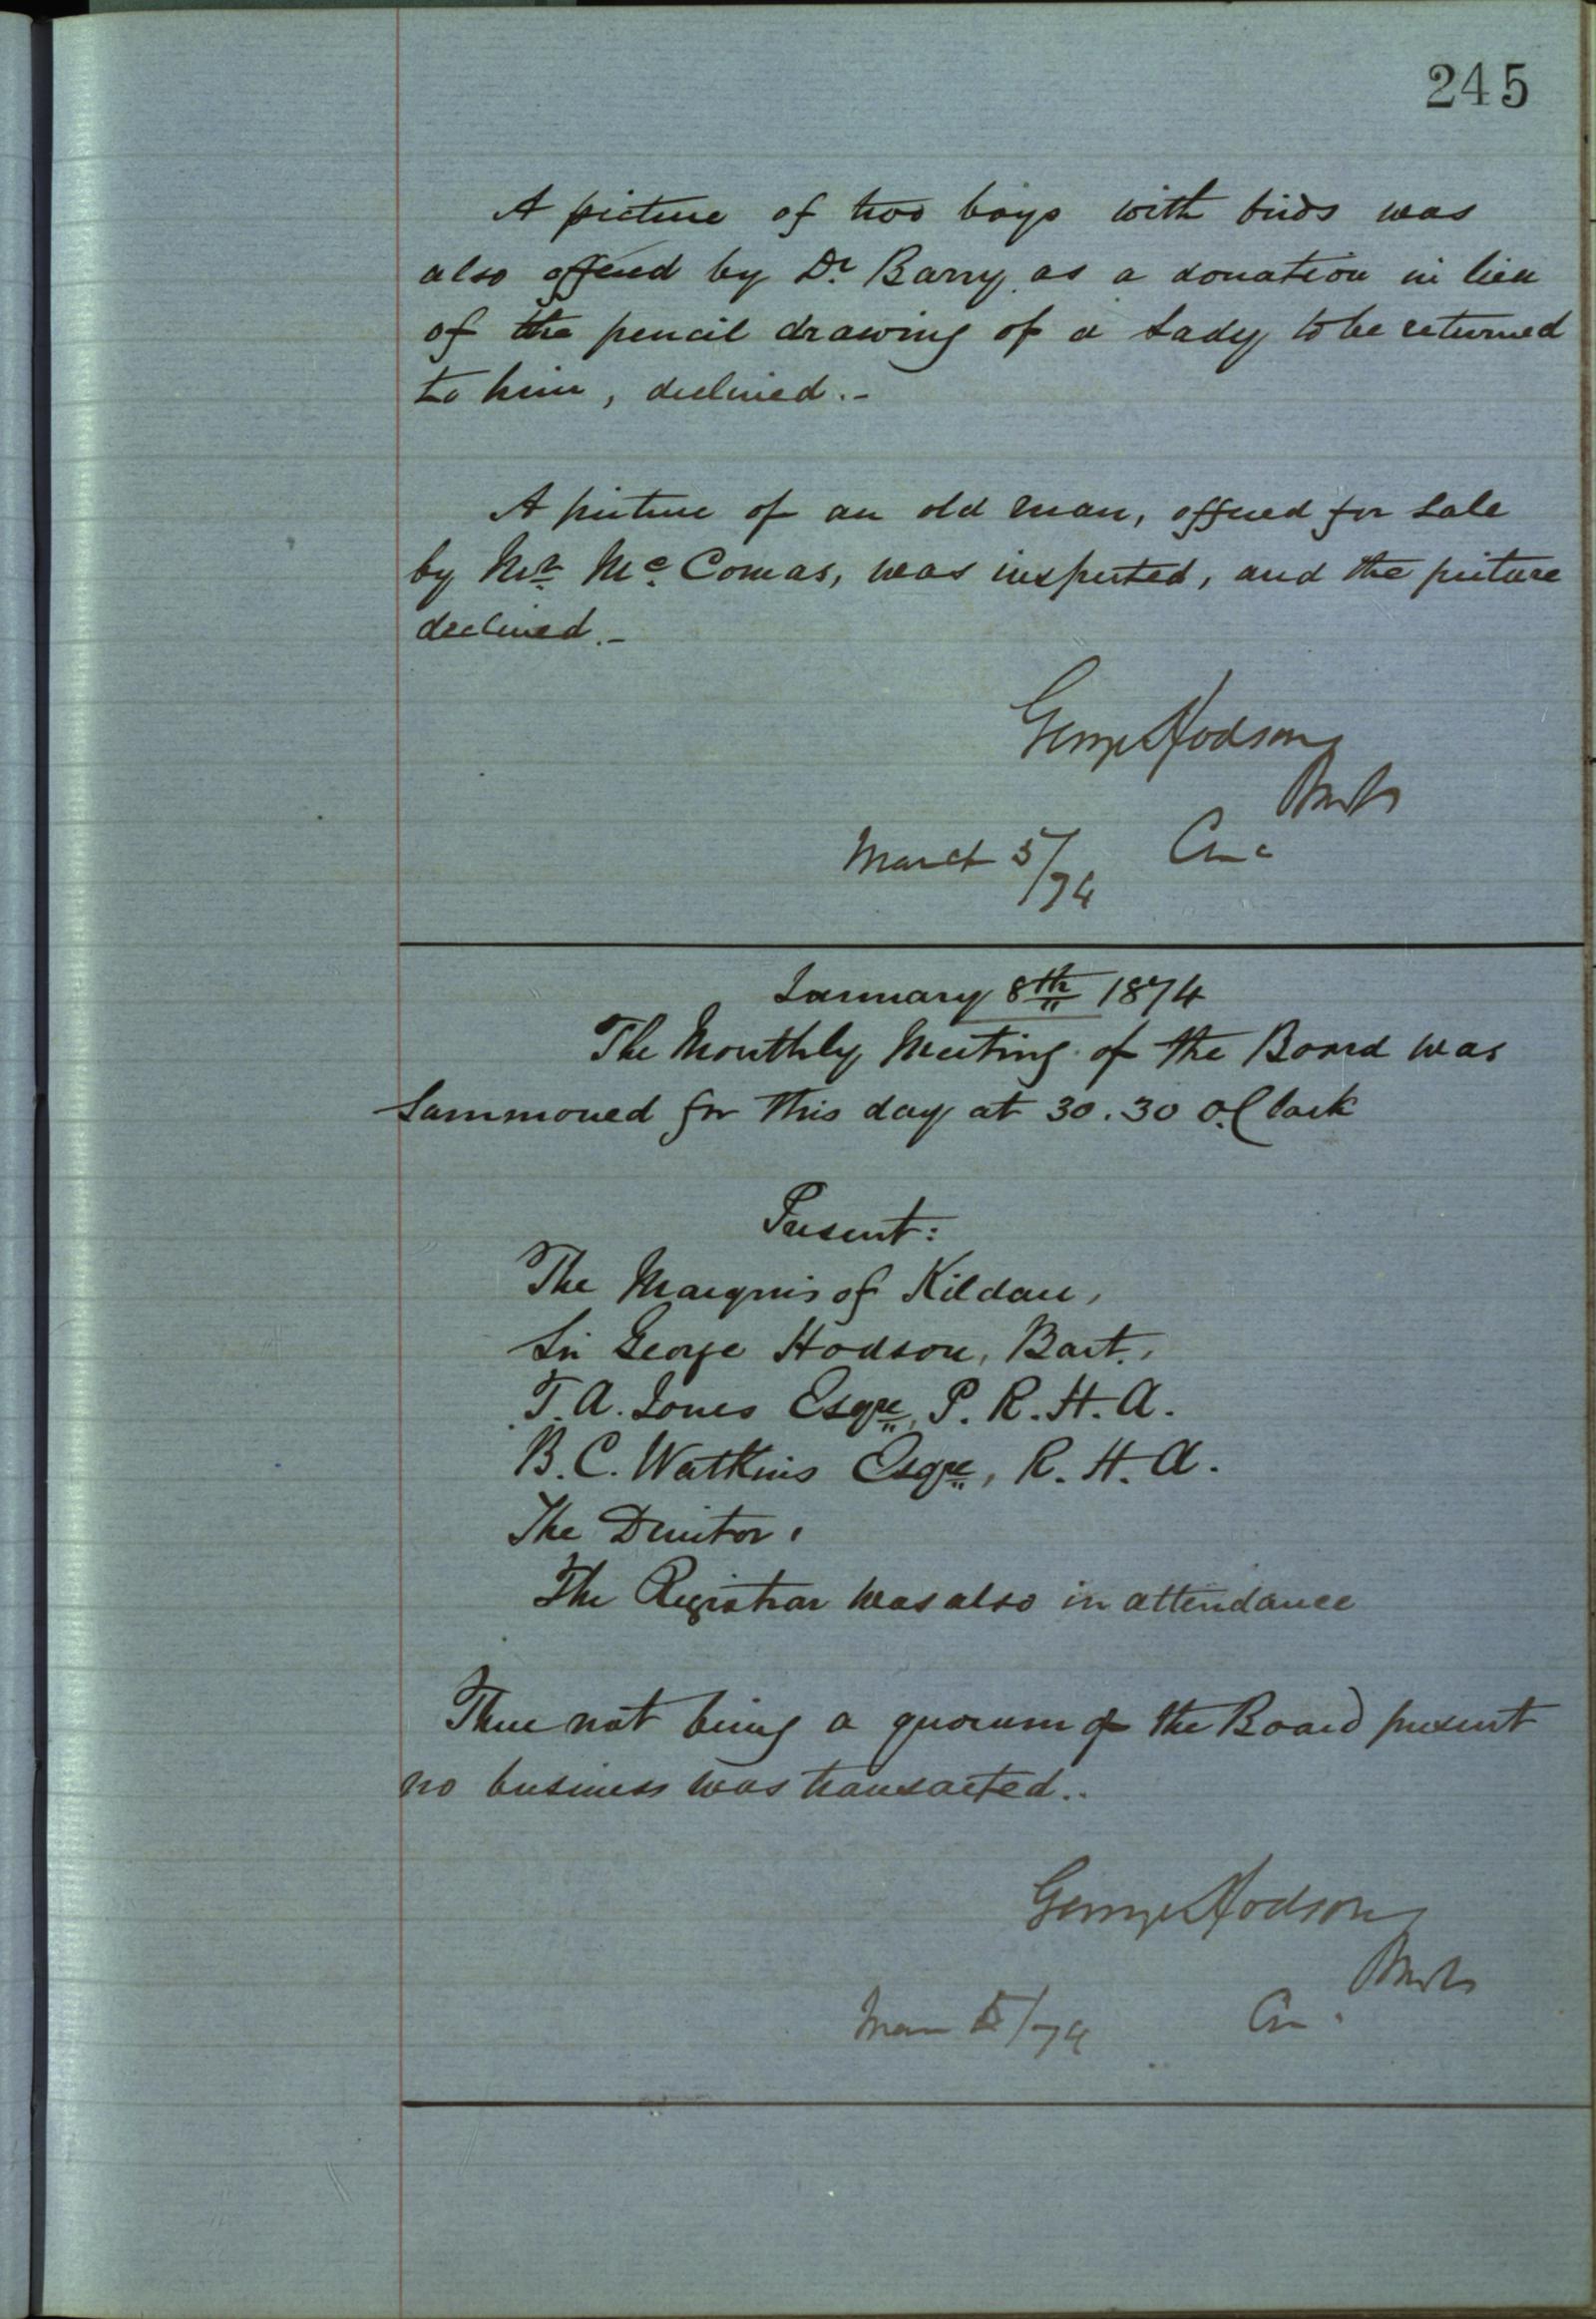 245
A picture of two boys with birds was
also offered by Dr. Barry, as a donation in lieu
of the pencil drawing of a Lady to be returned
to him, declined.-
A picture of an old man, offered for sale
by Mr. Mc. Comas, was inspected, and the picture
declined.-
George Hodson
Bart
March 5/74 Chn
January 8th 1874
The Monthly Meeting of the Board was
summoned for this day at 30.30 O.Clock
Present:
The Marquis of Kildare,
Sir George Hodson, Bart.,
T. A. Jones Esqre, P. R. H. A.
B. C. Watkins Esqre, R. H. A.
The Director.
The Registrar was also in attendance
There not being a quorum of the Board present
no business was transacted..
George Hodson
Bart
Mar 5/74 Chn.